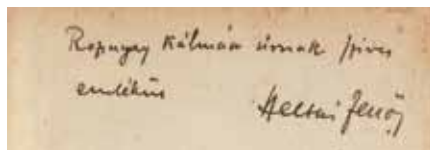 Kálmán úrnak szives
emlékül
Heltai Jenő